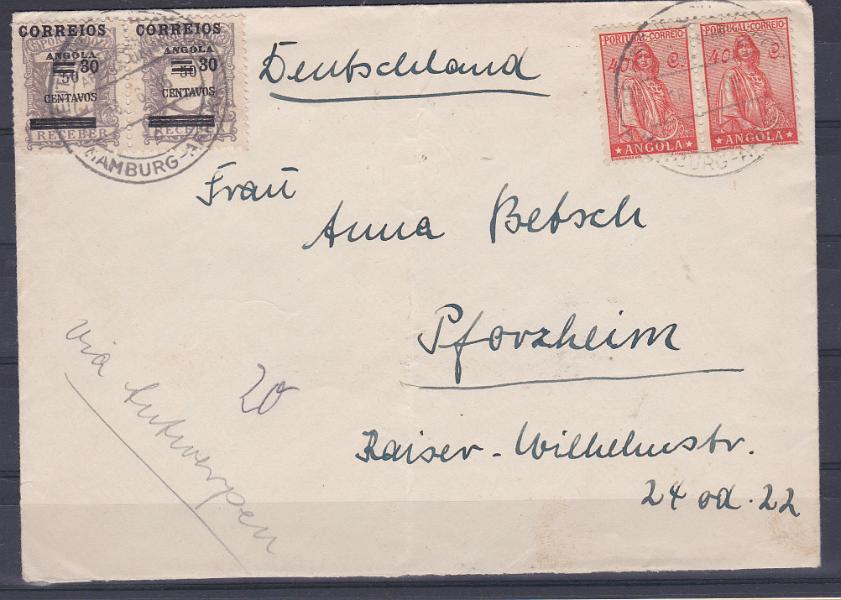 CORREIOS CORREIOS
ANGOLA ANGOLA
50 30 50 30
CENTAVOS CENTAVOS
RECEBER RECE
HAMBURG-A
PORTUGAL-CORREIO PORTUGAL-CORREIO
4 C. 40 C.
ANGOLA ANGOLA
BURG-A
Deutschland
Frau
Anna Betsch
Pforzheim
Kaiser-Wilhelmstr.
24 od. 22
20
via Antwerpen